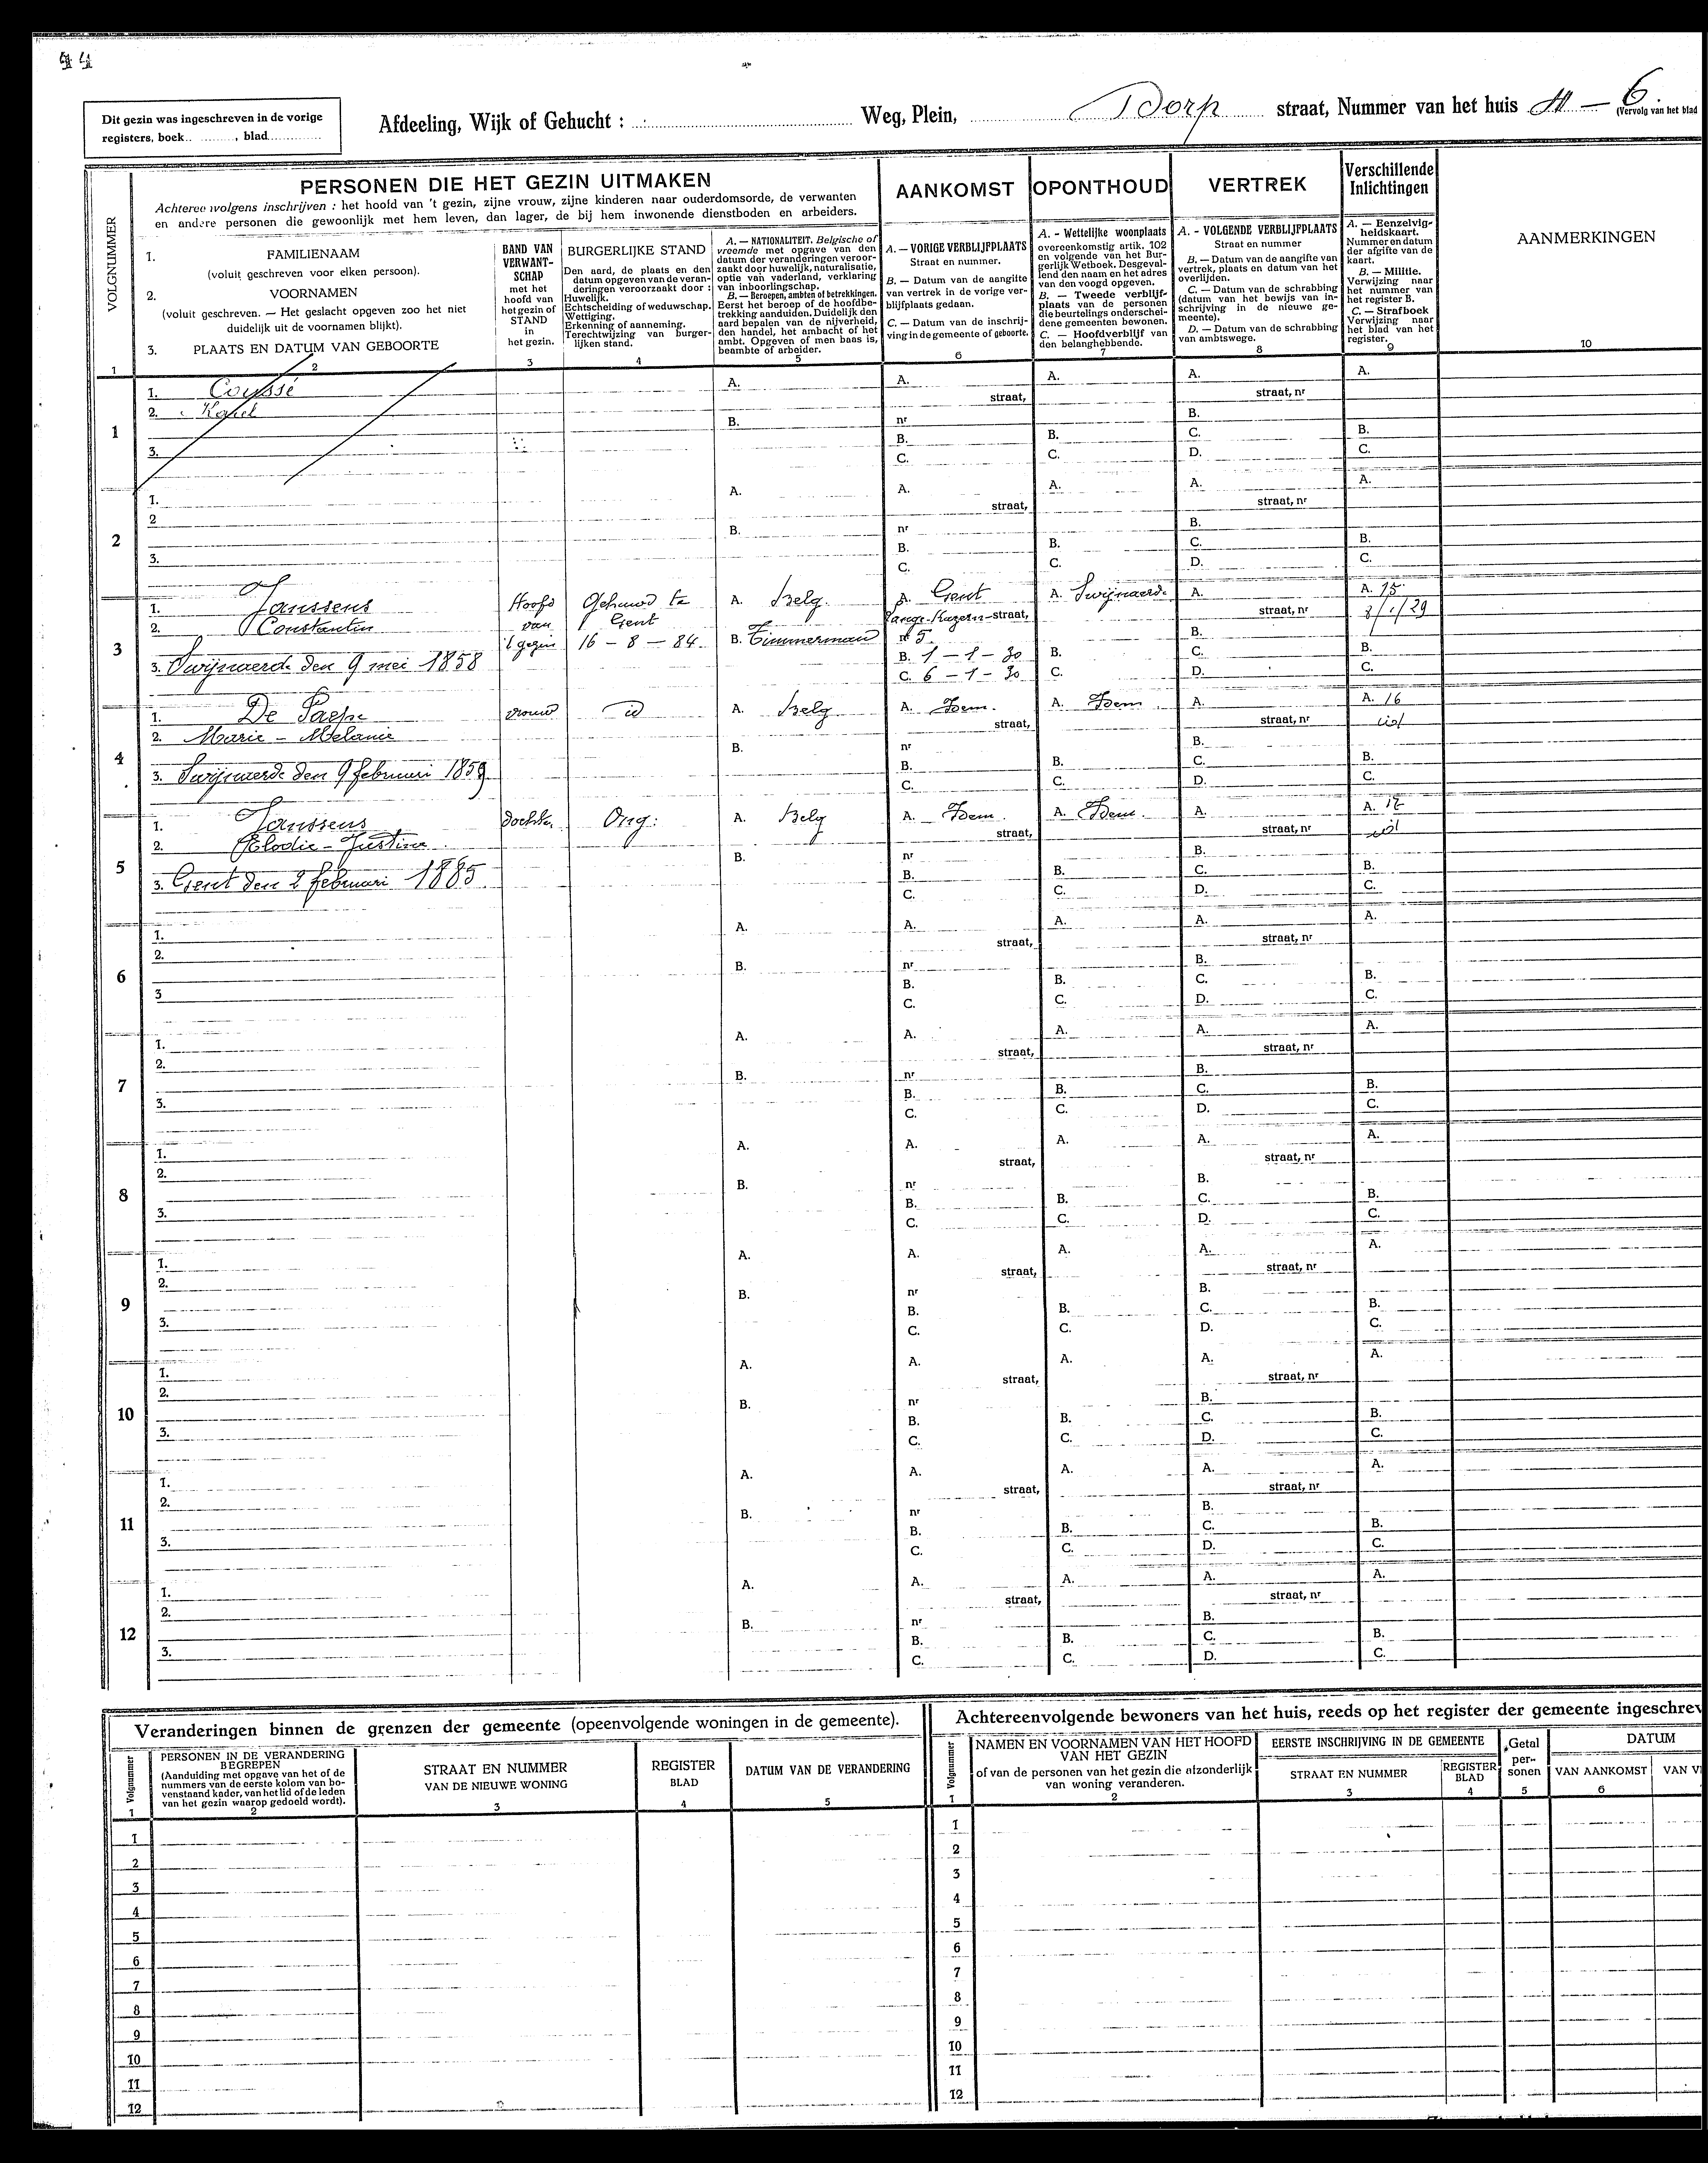 44
Dit gezin was ingeschreven in de vorige
registers, boek.. ........, blad............
Afdeeling, Wijk of Gehucht : Weg, Plein, Dorp straat, Nummer van het huis – 6.
(Vervolg van het blad
VOLGNUMMER
PERSONEN DIE HET GEZIN UITMAKEN
Achtereenvolgens inschrijven : het hoofd van 't gezin, zijne vrouw, zijne kinderen naar ouderdomsorde, de verwanten
en andere personen die gewoonlijk met hem leven, dan lager, de bij hem inwonende dienstboden en arbeiders.
1. FAMILIENAAM
(voluit geschreven voor elken persoon).
2. VOORNAMEN
(voluit geschreven. — Het geslacht opgeven zoo het niet
duidelijk uit de voornamen blijkt).
3. PLAATS EN DATUM VAN GEBOORTE
BAND VAN
VERWANT-
SCHAP
met het
hoofd van
het gezin of
STAND
in
het gezin.
BURGERLIJKE STAND
Den aard, de plaats en den
datum opgeven van de veran-
deringen veroorzaakt door :
Huwelijk.
Echtscheiding of weduwschap.
Wettiging.
Erkenning of aanneming.
Terechtwijzing van burger-
lijken stand.
A. — NATIONALITEIT. Belgische of
vreemde met opgave van den
datum der veranderingen veroor-
zaakt door huwelijk, naturalisatie,
optie van vaderland, verklaring
van inboorlingschap.
B. — Beroepen, ambten of betrekkingen.
Eerst het beroep of de hoofdbe-
trekking aanduiden. Duidelijk den
aard bepalen van de nijverheid,
den handel, het ambacht of het
ambt. Opgeven of men baas is,
beambte of arbeider.
AANKOMST
A. — VORIGE VERBLIJFPLAATS
Straat en nummer.
B. — Datum van de aangifte
van vertrek in de vorige ver-
blijfplaats gedaan.
C. — Datum van de inschrij-
ving in de gemeente of geboorte.
OPONTHOUD
A. - Wettelijke woonplaats
overeenkomstig artik. 102
en volgende van het Bur-
gerlijk Wetboek. Desgeval-
lend den naam en het adres
van den voogd opgeven.
B. — Tweede verblijf-
plaats van de personen
die beurtelings onderschei-
dene gemeenten bewonen.
C. — Hoofdverblijf van
den belanghebbende.
VERTREK
A. - VOLGENDE VERBLIJFPLAATS
Straat en nummer
B. — Datum van de aangifte van
vertrek, plaats en datum van het
overlijden.
C. — Datum van de schrabbing
(datum van het bewijs van in-
schrijving in de nieuwe ge-
meente).
D. — Datum van de schrabbing
van ambtswege.
Verschillende
Inlichtingen
A. — Eenzelvig-
heidskaart.
Nummer en datum
der afgifte van de
kaart.
B. — Militie.
Verwijzing naar
het nummer van
het register B.
C. — Strafboek
Verwijzing naar
het blad van het
register.
AANMERKINGEN
1 2 3 4 5 6 7 8 9 10
1
1. Coyssé A. A. straat, A. A. straat, nr A.
2. Karel B. nr B.
3. B. C. B. C. C. D. B. C.
2
1. A. A. straat, A. A. straat, nr A.
2 B. nr B.
3. B. C. B. C. C. D. B. C.
3
1. Janssens Hoofd Gehuwd te A. Belg. A. Gent A. Swijnaerde A. A. 15
2. Constantin van Gent Lange-Kazern-straat, straat, nr 8/1/29
't gezin 16 – 8 – 84. B. Timmerman nr 5. B.
3. Swijnaerde den 9 mei 1858 B. 1 – 1 – 30 B. C. B.
C. 6 – 1 – 30 C. D. C.
4
1. De Paepe vrouw id A. Belg A. Idem. A. Idem. A. A. 16
2. Marie – Melanie straat, straat, nr
B. nr B.
3. Swijnaerde den 9 februari 1859. B. C. B. C. C. D. B. C.
5
1. Janssens dochter. Ong: A. Belg A. Idem. A. Idem. A. A. 17
2. Elodie – Justine straat, straat, nr
B. nr B.
3. Gent den 2 februari 1885. B. C. B. C. C. D. B. C.
6
1. A. A. straat, A. A. straat, nr A.
2. B. nr B.
3 B. C. B. C. C. D. B. C.
7
1. A. A. straat, A. A. straat, nr A.
2. B. nr B.
3. B. C. B. C. C. D. B. C.
8
1. A. A. straat, A. A. straat, nr A.
2. B. nr B.
3. B. C. B. C. C. D. B. C.
9
1. A. A. straat, A. A. straat, nr A.
2. B. nr B.
3. B. C. B. C. C. D. B. C.
10
1. A. A. straat, A. A. straat, nr A.
2. B. nr B.
3. B. C. B. C. C. D. B. C.
11
1. A. A. straat, A. A. straat, nr A.
2. B. nr B.
3. B. C. B. C. C. D. B. C.
12
1. A. A. straat, A. A. straat, nr A.
2. B. nr B.
3. B. C. B. C. C. D. B. C.
Veranderingen binnen de grenzen der gemeente (opeenvolgende woningen in de gemeente).
Volgnummer
PERSONEN IN DE VERANDERING
BEGREPEN
(Aanduiding met opgave van het of de
nummers van de eerste kolom van bo-
venstaand kader, van het lid of de leden
van het gezin waarop gedoeld wordt).
STRAAT EN NUMMER
VAN DE NIEUWE WONING
REGISTER
BLAD
DATUM VAN DE VERANDERING
1 2 3 4 5
1
2
3
4
5
6
7
8
9
10
11
12
Achtereenvolgende bewoners van het huis, reeds op het register der gemeente ingeschrev
Volgnummer
NAMEN EN VOORNAMEN VAN HET HOOFD
VAN HET GEZIN
of van de personen van het gezin die afzonderlijk
van woning veranderen.
EERSTE INSCHRIJVING IN DE GEMEENTE
STRAAT EN NUMMER
REGISTER
BLAD
Getal
per-
sonen
DATUM
VAN AANKOMST
VAN V
1 2 3 4 5 6
1
2
3
4
5
6
7
8
9
10
11
12